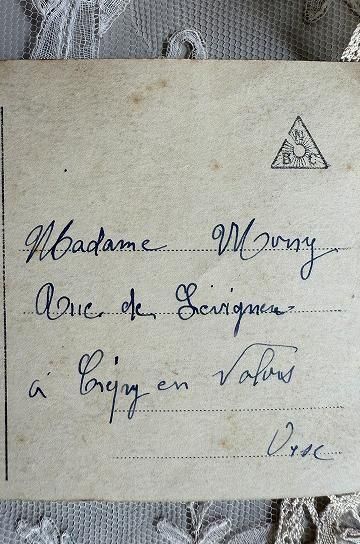 W
B C
Madame Morsy
Rue de Lévignen
à Crépy en Valois
Oise